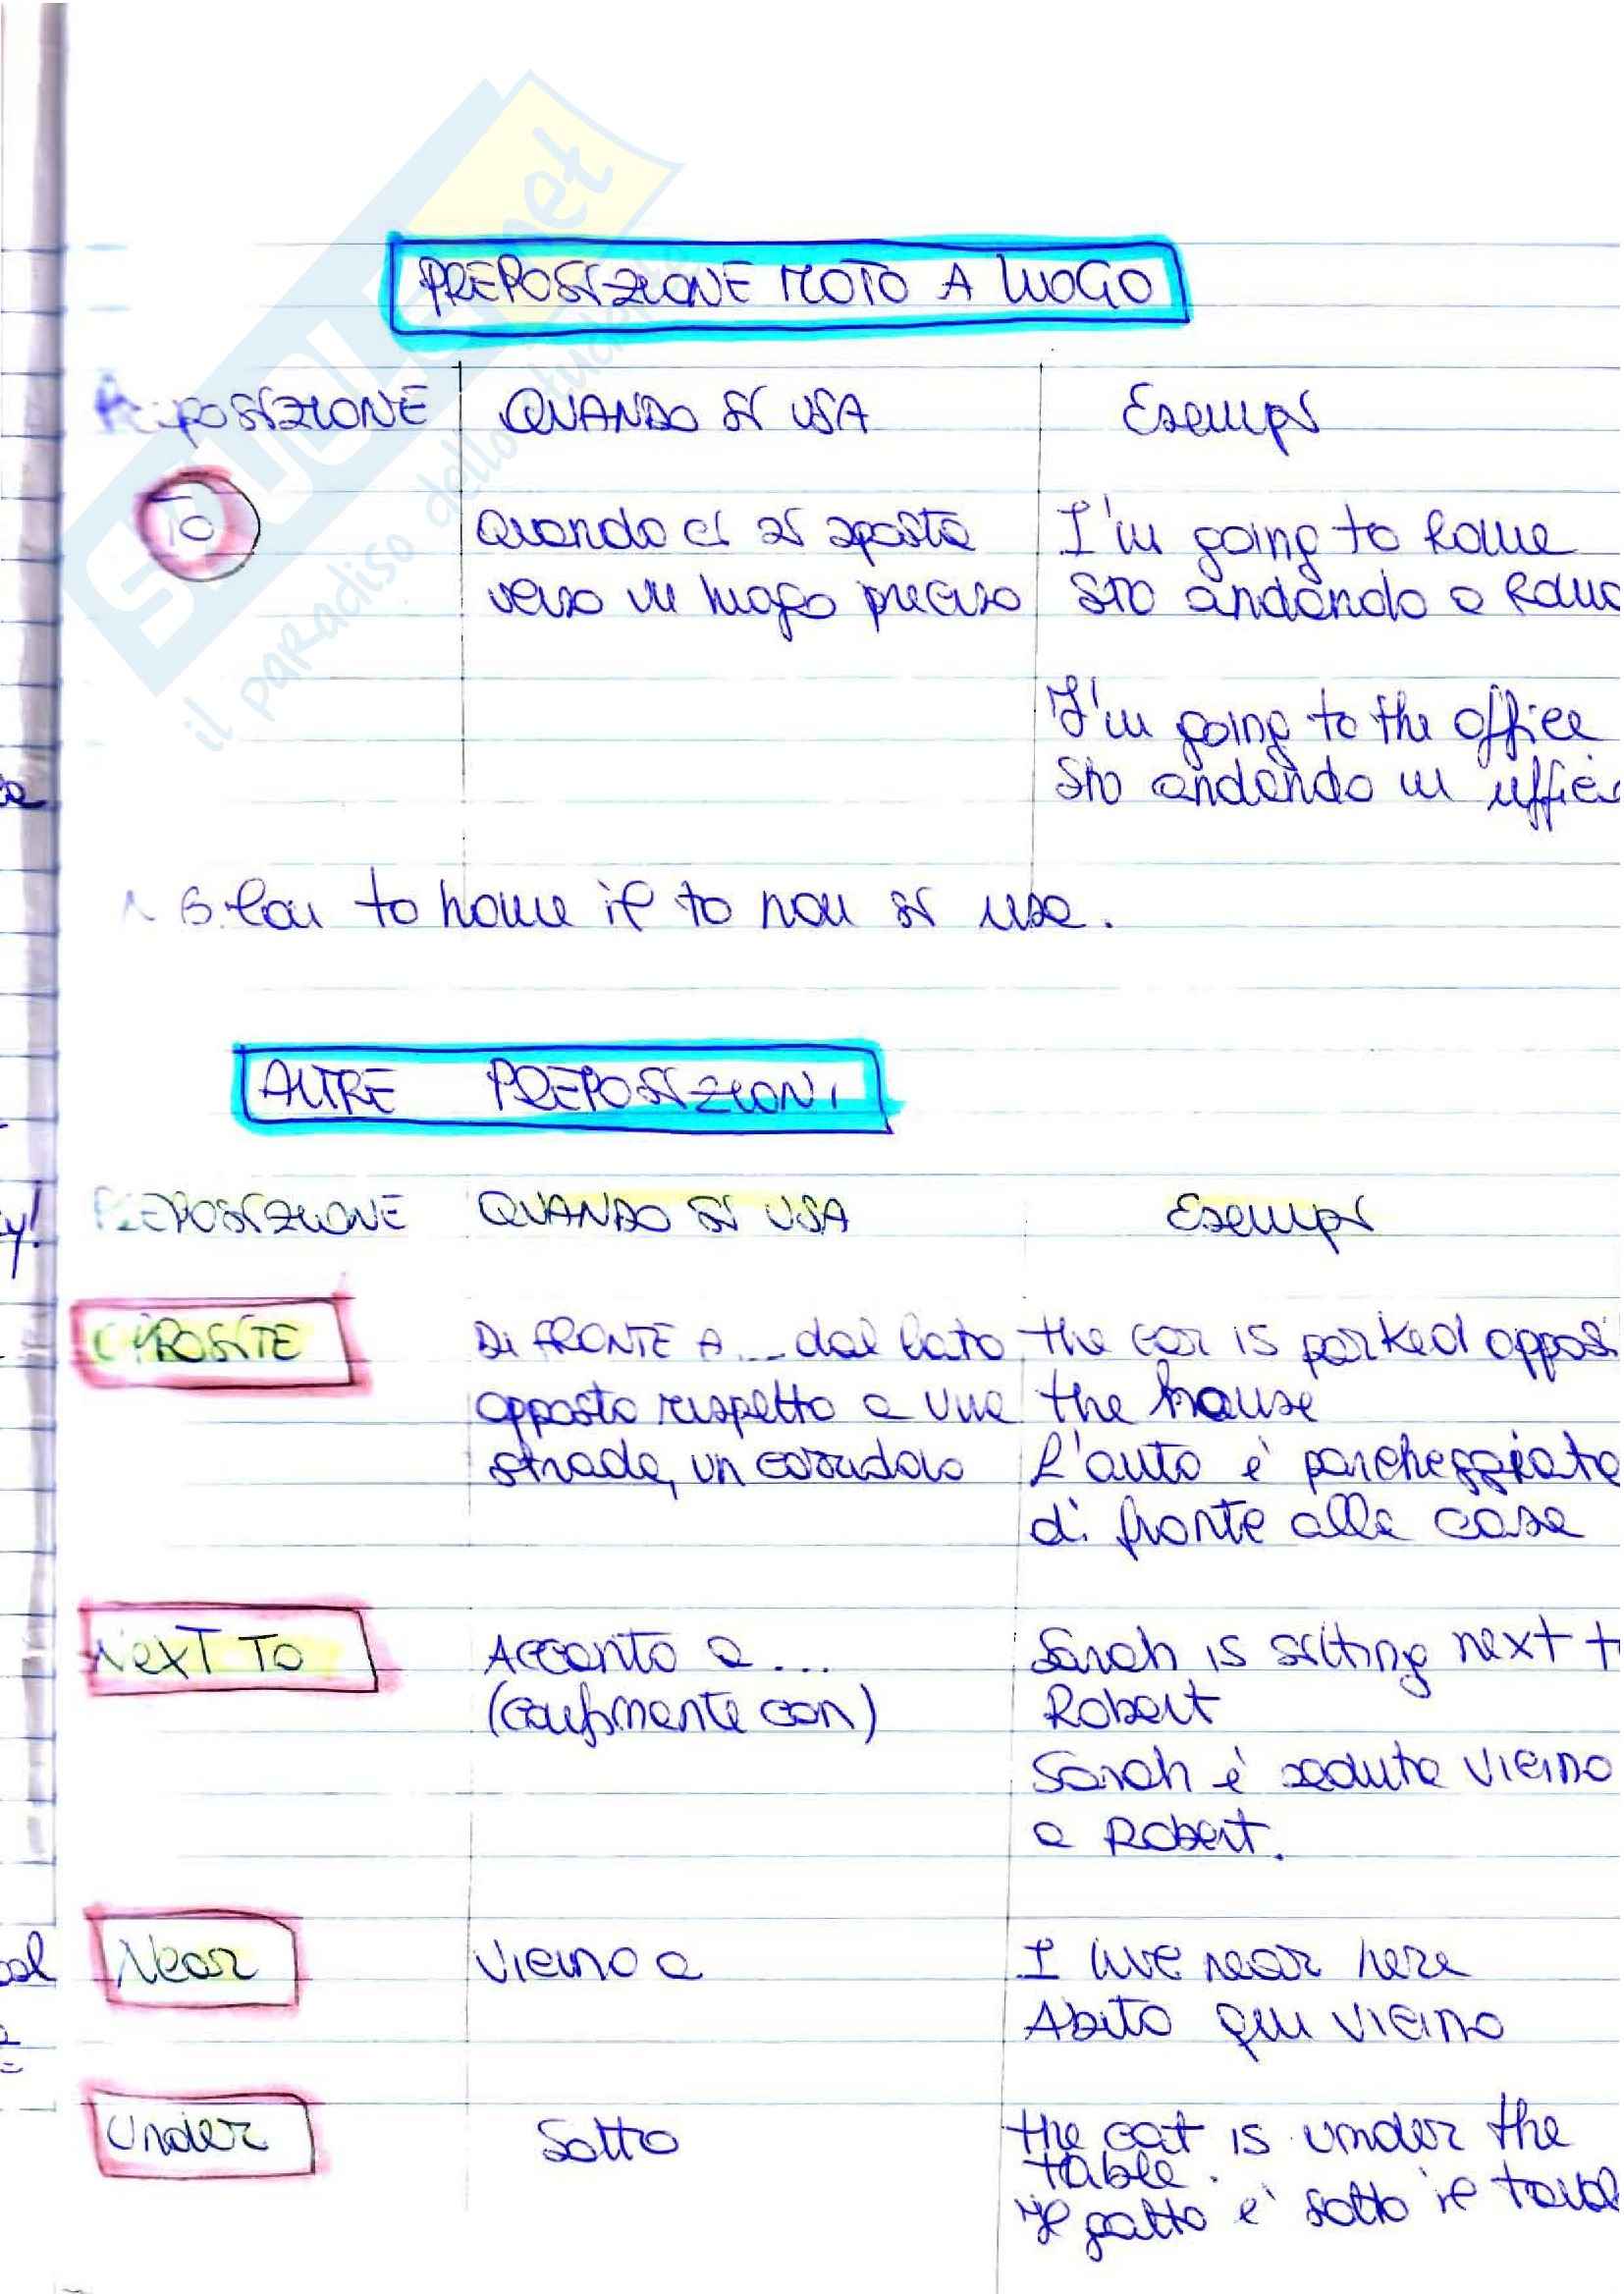 SKUOLA.net
il paradiso dello studente
PREPOSIZIONE MOTO A LUOGO
PREPOSIZIONE QUANDO SI USA Esempi
TO Quando ci si sposta I'm going to Rome
verso un luogo preciso Sto andando a Roma
I'm going to the office
Sto andando in uffici
N.B. Con to home il to non si usa.
ALTRE PREPOSIZIONI
PREPOSIZIONE QUANDO SI USA Esempi
OPPOSITE Di FRONTE A... dal lato the car is parked opposi
opposto rispetto a una the house
strada, un corridoio L'auto è parcheggiata
di fronte alla casa
NEXT TO Accanto a... Sarah is sitting next t
(confinante con) Robert
Sarah è seduta vicino
a Robert.
Near Vicino a I live near here
Abito qui vicino
Under Sotto the cat is under the
table.
Il gatto è sotto il tavol